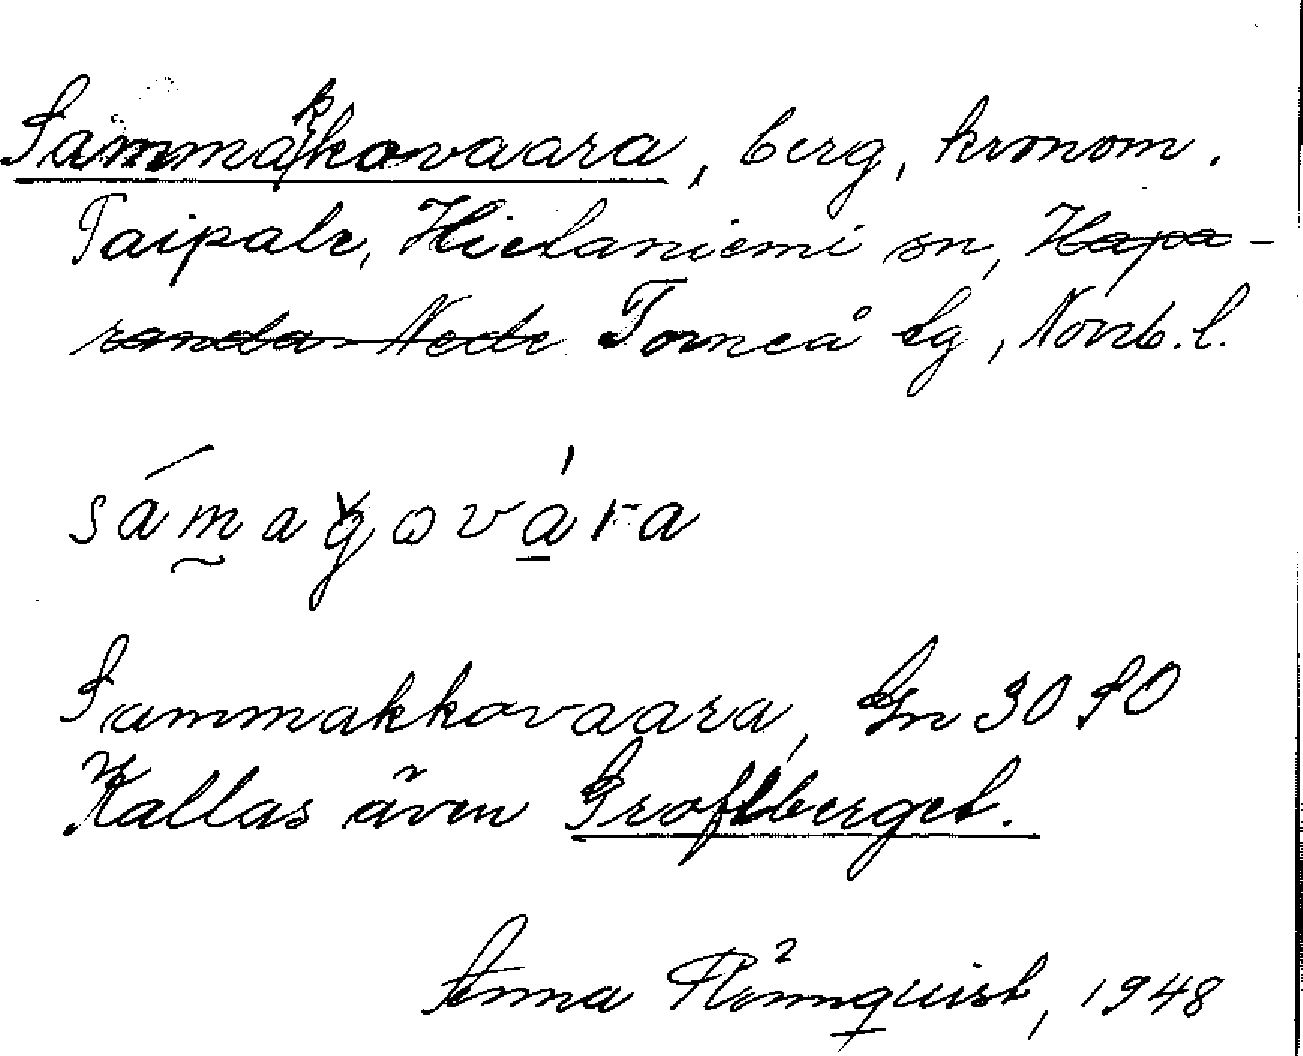 Sammakkovaara, berg, kronom.
Taipale, Hietaniemi sn, Hapa-
randa-Nede Torneå tg, Norrb. l.
sámagovára
Sammakkovaara, Gn 30 SO
Kallas även Groftberget.
Anna Rönnquist, 1948